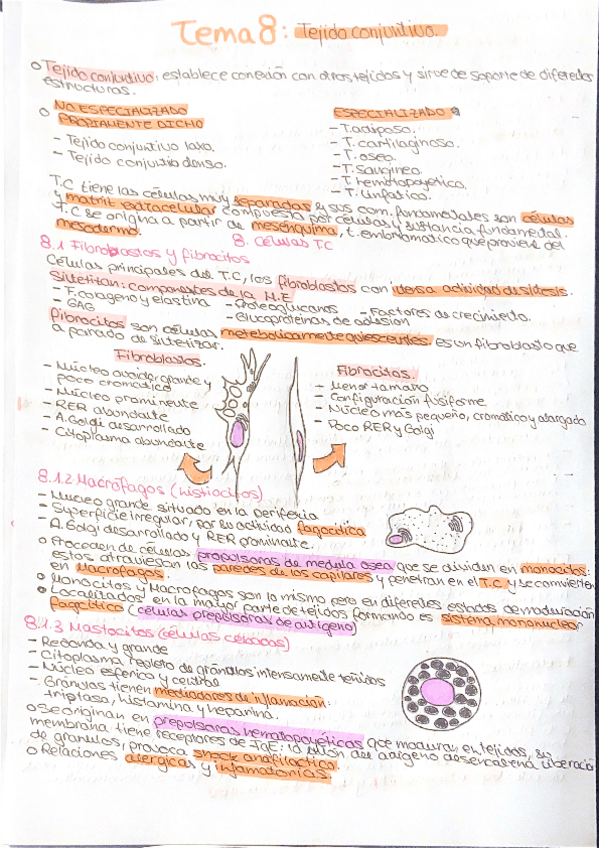 Tema 8: Tejido conjuntivo.
○ Tejido conjuntivo: establece conexión con otros tejidos y sirve de soporte de diferentes
estructuras.
○ NO ESPECIALIZADO
PROPIAMENTE DICHO
- Tejido conjuntivo laxo.
- Tejido conjuntivo denso.
ESPECIALIZADO
- T. adiposo.
- T. cartilaginoso.
- T. oseo.
- T. sangineo.
- T. hematopoyetico.
- T. linfatico.
T.C tiene las células muy separadas y sus com. fundamentales son células
y matriz extracelular compuesta por células y sustancia fundamental.
T.C se origina a partir de mesénquima, t. embrionatico que proviene del
mesodermo.
8. Células TC
8.1 Fibroblastos y fibrocitos
Células principales del T.C, los fibroblastos con idensa actividad de sítesis.
Sitetitan: componentes de la M.E
- F. colageno y elastina
- GAG
- Proteoglucanos
- Glucoproteinas de adhesion
- Factores de crecimiento.
Fibrocitos son células metabolicamente quiescentes. es un fibroblasto que
a parado de sintetizar.
Fibroblastos.
- Núcleo ovoide, grande y
poco cromatico
- Núcleo prominente
- RER abundante
- A. Golgi desarrollado
- Citoplasma abundante
Fibrocitos.
- Menor tamaño
- Configuración fusiforme
- Núcleo más pequeño, cromático y alargado
- Poco RER y Golgi
8.1.2 Macrófagos (histiocitos)
- Nucleo grande situado en la periferia
- Superficie irregular, por su actividad fagocitica
- A. Golgi desarrollado y RER prominente.
○ Proceden de células propulsoras de medula osea que se dividen en monocitos:
estos atraviesan las paredes de los capilares y penetran en el T.C. y se convierten
en Macrofagos.
○ Monocitos y Macrofagos son lo mismo pero en diferetes estados de maduración
○ Localizados en la mayor parte de tejidos formando es sistema mononuclear
fagcitico (células prepulsoras de antigeno)
8.1.3 Mastocitos (células cebadas)
- Redonda y grande
- Citoplasma repleto de gránulos intensamente teñidos
- Núcleo esferico y central
- Gránulos tienen mediadores de inflamación:
triptasa, histamina y heparina.
○ Se originan en prepulsoras hematopoyéticas que maduran en tejidos, su
membrana tiene receptores de IgE: la unión del antigeno desencadena liberación
de granulos, provoca shock anafilactico.
○ Relaciones alergicas y inflamatorias.